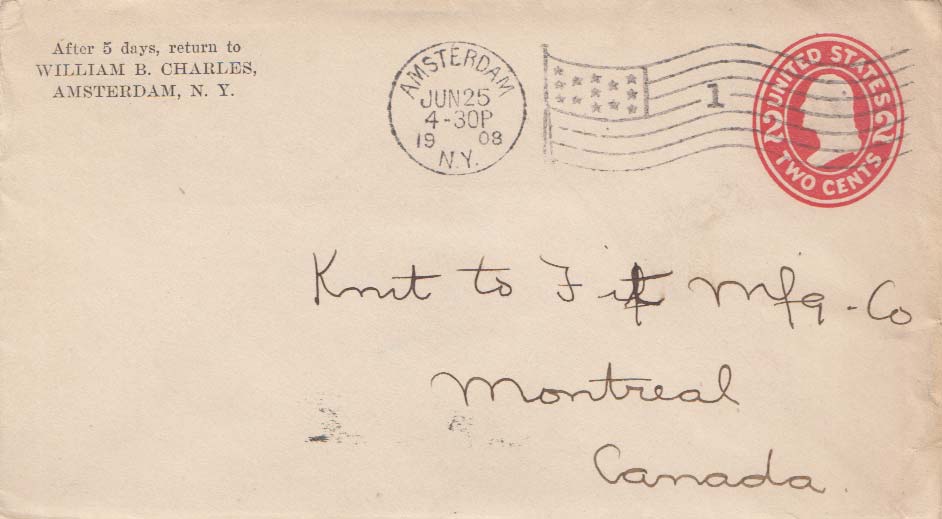 After 5 days, return to
WILLIAM B. CHARLES,
AMSTERDAM, N. Y.
AMSTERDAM
JUN 25
4-30P
19 08
N.Y.
1
UNITED STATES
2 2
TWO CENTS
Knit to Fit Mfg. Co
Montreal
Canada.